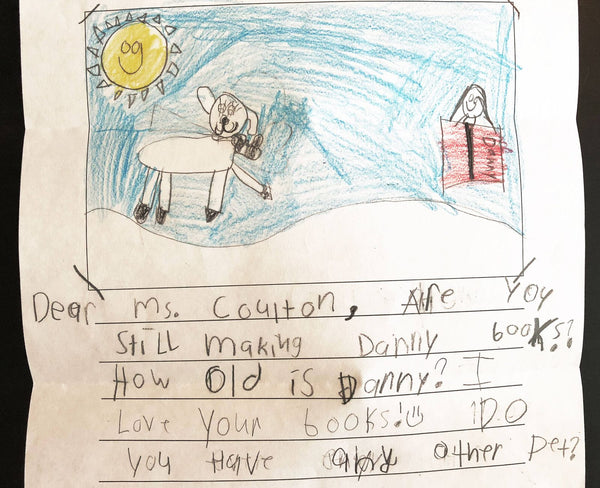 Danny
Dear Ms. Coulton, Are You
Still making Danny books?
How Old is Danny? I
Love Your books! DO
You Have any other Pet?